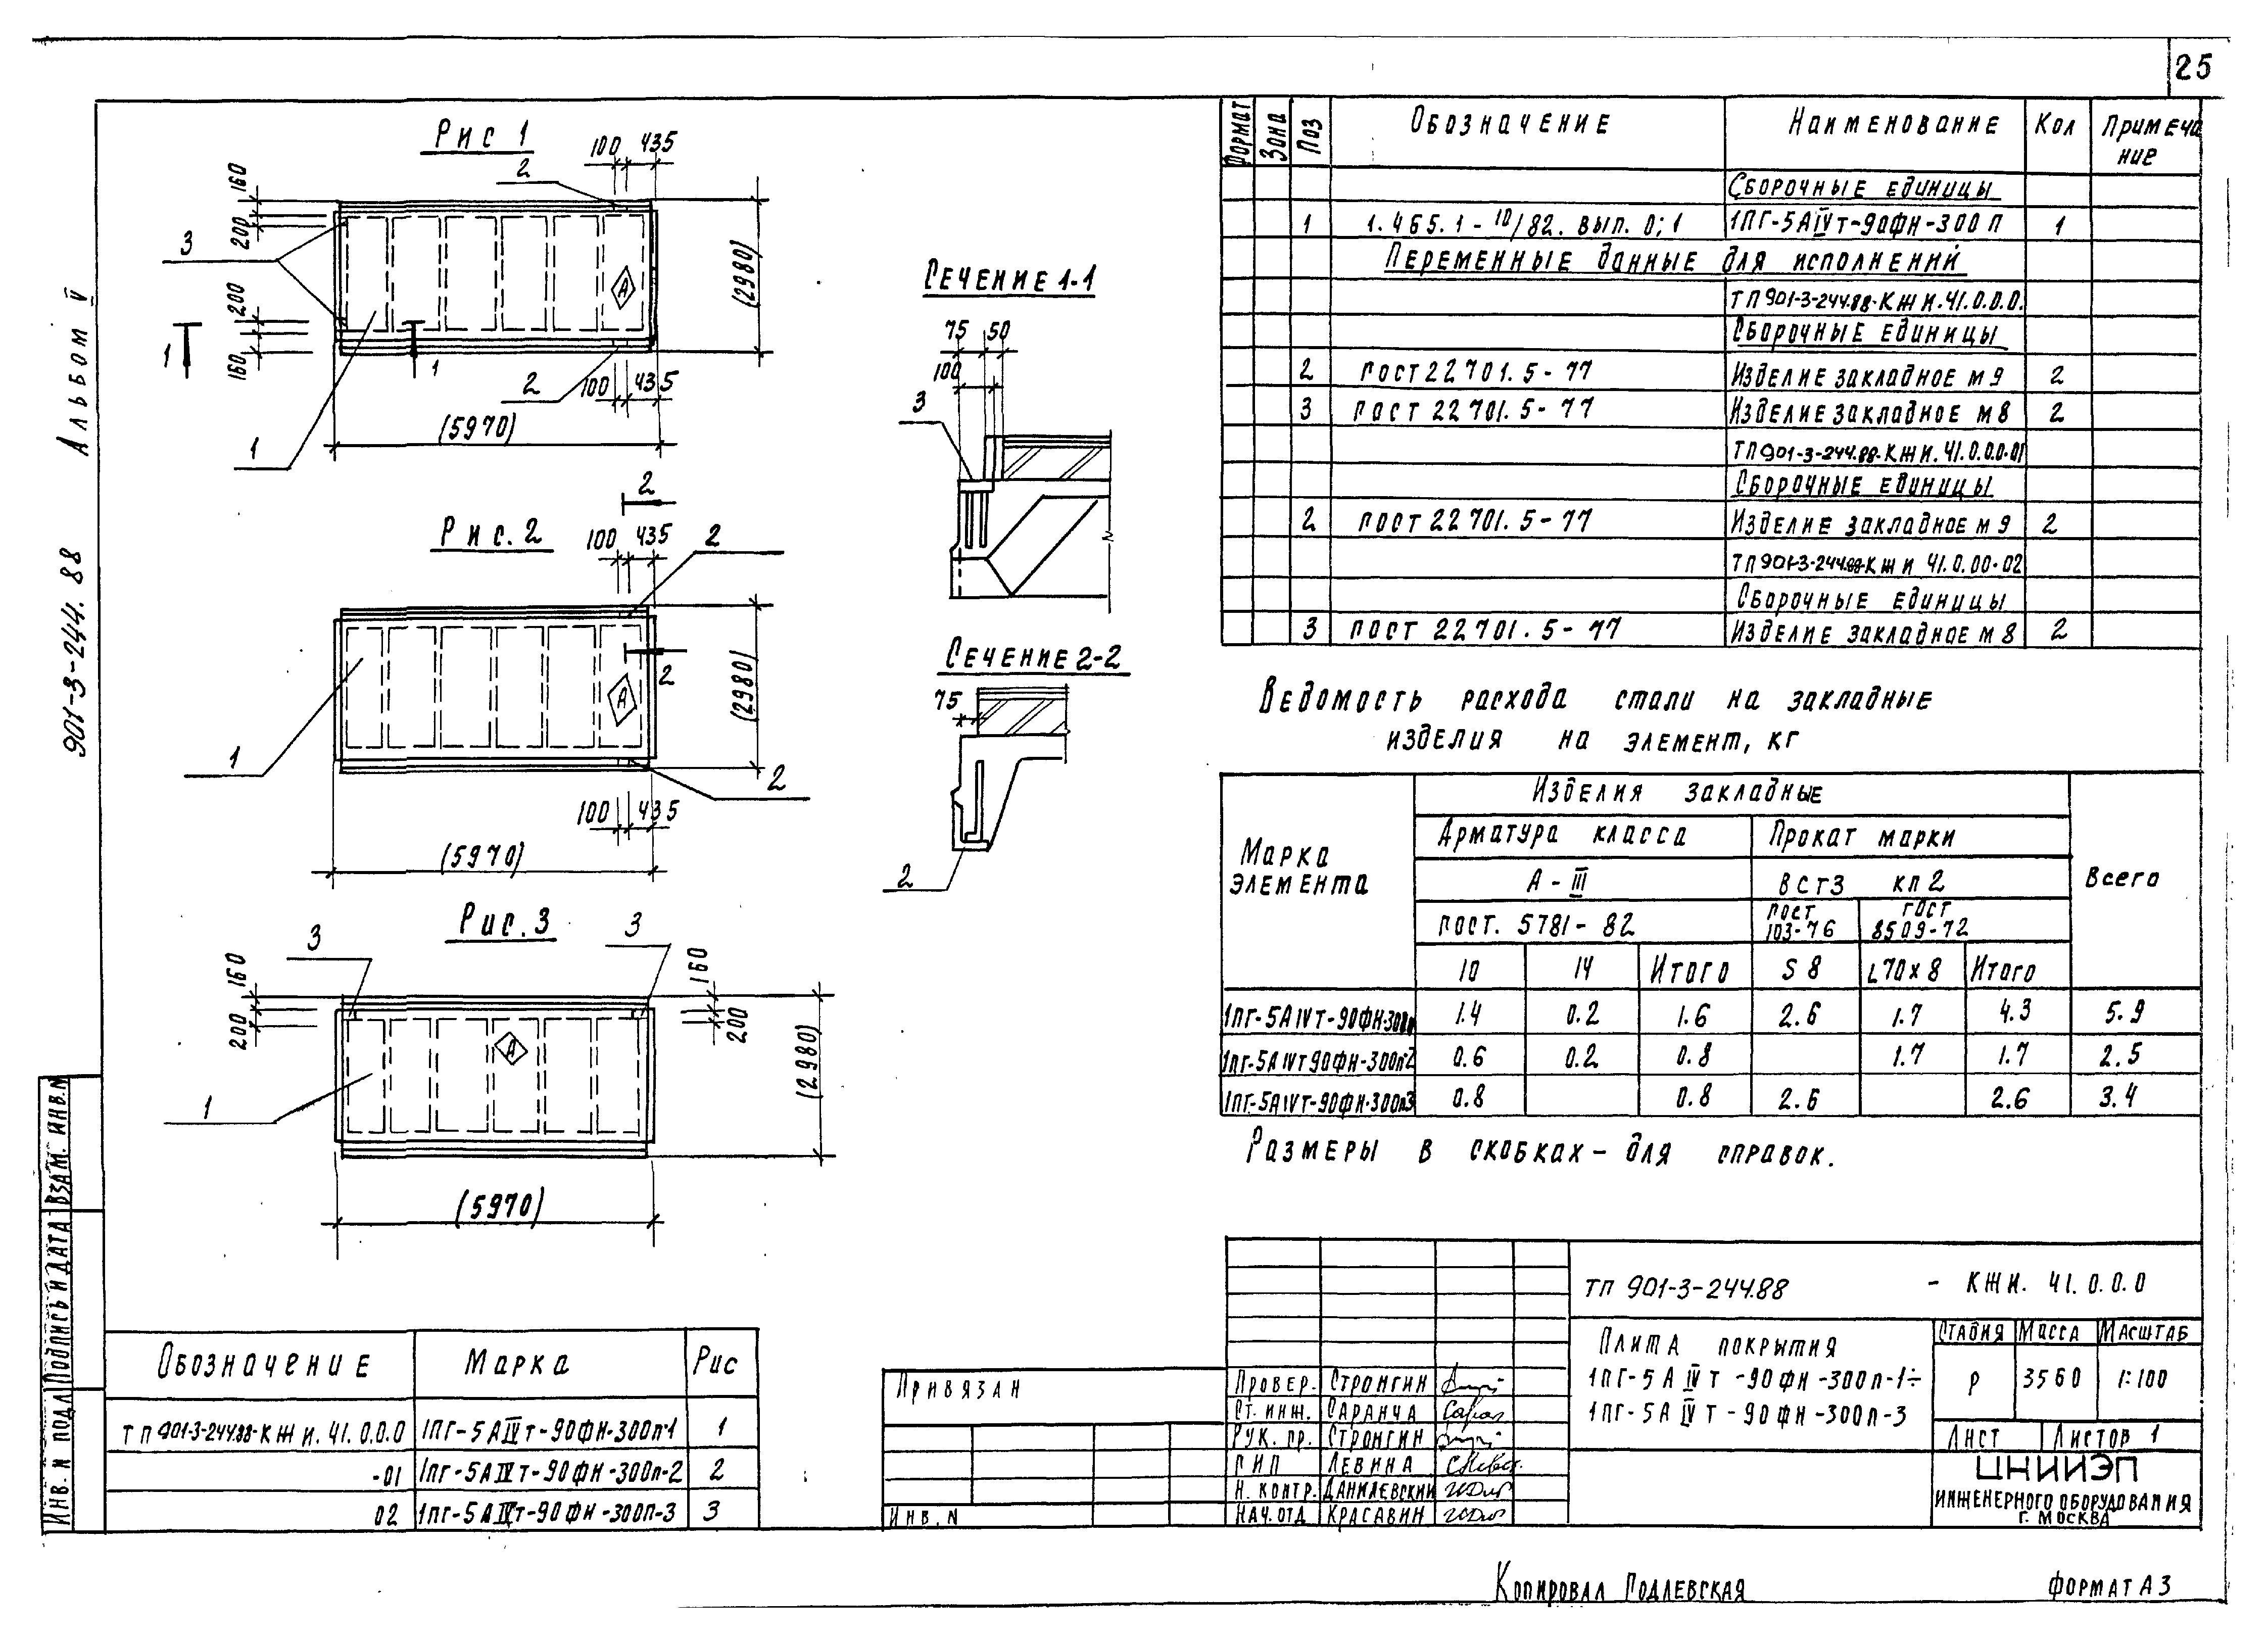 25
Альбом V
901-3-244.88
Рис 1
100 435
2
160
200
3
200
160
(2980)
А
1 1
2
100 435
(5970)
1
2
Рис. 2
100 435 2
1
А
2
(2980)
2
100 435
(5970)
Рис. 3
3 3
160 160
200 200
А
(2980)
1
(5970)
Сечение 1-1
75 50
100
3
Сечение 2-2
75
2
Формат Зона Поз Обозначение Наименование Кол Примеча
ние
Сборочные единицы
1 1.465.1-10/82. вып. 0; 1 1ПГ-5АIVт-90ФН-300П 1
Переменные данные для исполнений
ТП901-3-244.88-КЖИ.41.0.0.0.
Сборочные единицы
2 ГОСТ 22701.5-77 Изделие закладное М9 2
3 ГОСТ 22701.5-77 Изделие закладное М8 2
ТП901-3-244.88-КЖИ.41.0.0.0-01
Сборочные единицы
2 ГОСТ 22701.5-77 Изделие закладное М9 2
ТП901-3-244.88-КЖИ 41.0.00-02
Сборочные единицы
3 ГОСТ 22701.5-77 Изделие закладное М8 2
Ведомость расхода стали на закладные
изделия на элемент, кг
Марка
элемента
Изделия закладные
Всего
Арматура класса Прокат марки
А-III ВСт3 кп2
ГОСТ. 5781-82 ГОСТ
103-76 ГОСТ
8509-72
10 14 Итого S 8 L70x8 Итого
1ПГ-5АIVТ-90ФН-300п 1.4 0.2 1.6 2.6 1.7 4.3 5.9
1ПГ-5АIVТ90ФН-300п-2 0.6 0.2 0.8 1.7 1.7 2.5
1ПГ-5АIVТ-90ФН-300п3 0.8 0.8 2.6 2.6 3.4
Размеры в скобках - для справок.
Обозначение Марка Рис
ТП901-3-244.88-КЖИ.41.0.0.0 1ПГ-5АIVт-90ФН-300п-1 1
-01 1ПГ-5АIVт-90ФН-300п-2 2
02 1ПГ-5АIVт-90ФН-300П-3 3
Привязан
Инв. N
Провер. Стронгин
Ст. инж. Саранча
Рук. гр. Стронгин
ГИП Левина
Н. контр. Данилевский
Нач. отд Красавин
ТП 901-3-244.88 - КЖИ. 41.0.0.0
Плита покрытия
1ПГ-5АIVТ-90ФН-300п-1÷
1ПГ-5АIVТ-90ФН-300п-3
Стадия Масса Масштаб
Р 3560 1:100
Лист Листов 1
ЦНИИЭП
инженерного оборудования
г. Москва
Инв. N подл Подпись и дата Взам. инв. N
Копировал Подлевская Формат А3